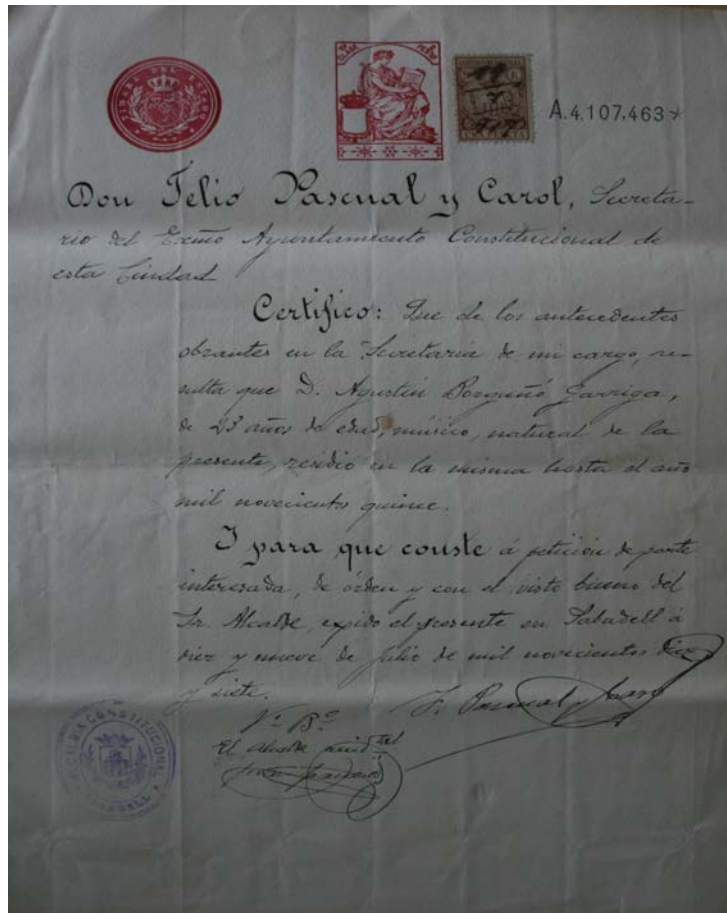 TIMBRE DEL ESTADO
A.4.107.463
Don Felio Pascual y Carol, Secreta-
rio del Excmo Ayuntamiento Constitucional de
esta Ciudad
Certifico: Que de los antecedentes
obrantes en la Secretaria de mi cargo, re-
sulta que D. Agustin Borguñó Garriga,
de 23 años de edad, músico, natural de la
presente, residio en la misma hasta el año
mil novecientos quince.
I para que conste á petición de parte
interesada, de órden y con el visto bueno del
Sr. Alcalde, expido el presente en Sabadell á
diez y nueve de julio de mil novecientos diez
y siete.
F. Pascual y Carol
Vº Bº
El Alcalde
ALCALDIA CONSTITUCIONAL
SABADELL